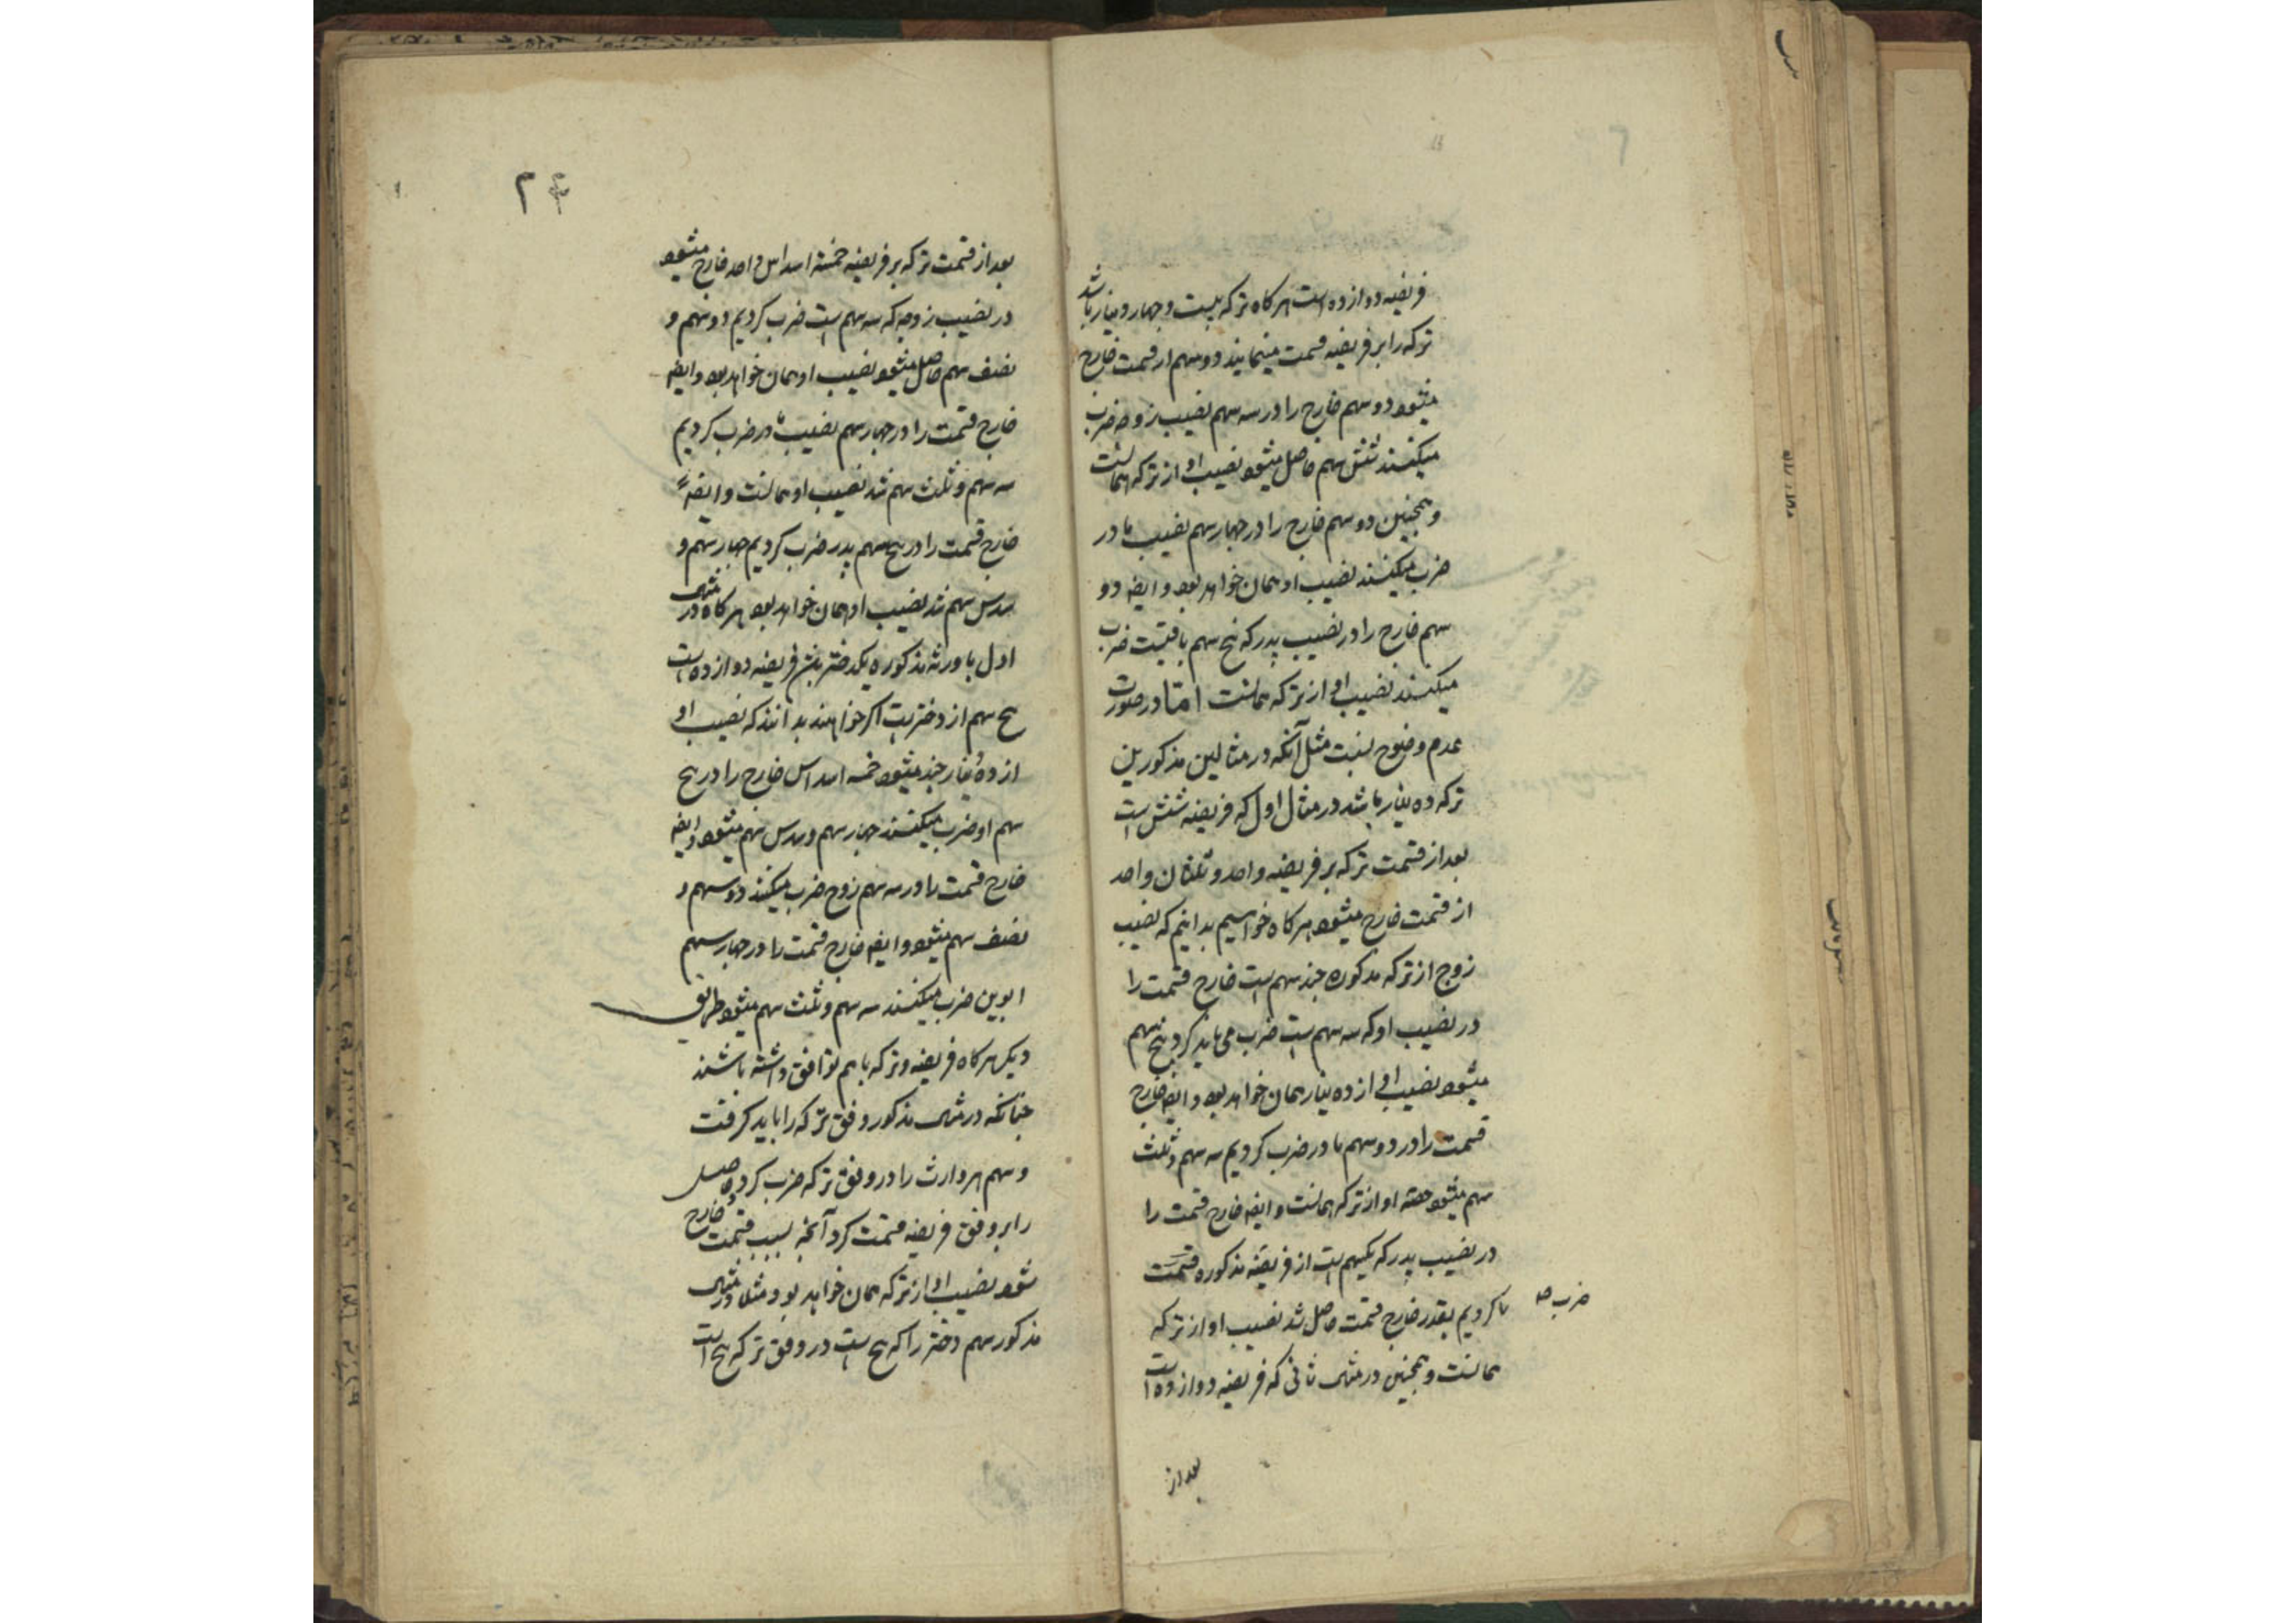 فریضه دوازده است هر کاه ترکه بیست و چهار دینار باشد
ترکه را بر فریضه قسمت مینمایند دو سهم از قسمت خارج
میشود دو سهم خارج را در سه سهم نصیب زوجه ضرب
میکنند شش سهم حاصل میشود نصیب او از ترکه همانست
و همچنین دو سهم خارج را در چهار سهم نصیب مادر
ضرب میکنند نصیب او همان خواهد بود و ایضا دو
سهم خارج را در نصیب پدر که پنج سهم باقیست ضرب
میکنند نصیب او از ترکه همانست اما در صورت
عدم وضوح نسبت مثل آنکه در مثالین مذکورین
ترکه ده دینار باشد در مثال اول که فریضه شش است
بعد از قسمت ترکه بر فریضه واحد و ثلثان واحد
از قسمت خارج میشود هر کاه خواسیم بدانیم که نصیب
زوج از ترکه مذکوره چند سهم است خارج قسمت را
در نصیب او که سه سهم است ضرب می باید کرد پنج سهم
میشود نصیب او از ده دینار همان خواهد بود و ایضا خارج
قسمت را در دو سهم مادر ضرب کردیم سه سهم و ثلث
سهم میشود حصه او از ترکه همانست و ایضا خارج قسمت را
در نصیب پدر که یکسهم است از فریضه مذکوره قسمت
کردیم بقدر خارج قسمت حاصل شد نصیب او از ترکه
ضرب صه
همانست و همچنین در مثال ثانی که فریضه دوازده است
بعد از
۲۴
بعد از قسمت ترکه بر فریضه خمسة اسداس واحد خارج میشود
در نصیب زوجه که سه سهم است ضرب کردیم دو سهم و
نصف سهم حاصل میشود نصیب او همان خواهد بود و ایضا
خارج قسمت را در چهار سهم نصیب مادر ضرب کردیم
سه سهم و ثلث سهم شد نصیب او همانست و ایضاً
خارج قسمت را در پنج سهم پدر ضرب کردیم چهار سهم و
سدس سهم شد نصیب او همان خواهد بود هر کاه در مثال
اول با ورثه مذکوره یکدختر باشد فریضه دوازده است
پنج سهم از دختر است اکر خواهند بدانند که نصیب او
از ده دینار چند میشود خمسه اسداس خارج را در پنج
سهم او ضرب میکنند چهار سهم و سدس سهم میشود و ایضا
خارج قسمت را در سه سهم زوج ضرب میکنند دو سهم و
نصف سهم میشود و ایضا خارج قسمت را در چهار سهم
ابوین ضرب میکنند سه سهم و ثلث سهم میشود طریق
دیکر هر کاه فریضه و ترکه با هم توافق داشته باشند
چنانکه در مثال مذکور وفق ترکه را باید کرفت
و سهم هر وارث را در وفق ترکه ضرب کرده حاصل
را بر وفق فریضه قسمت کرد آنچه بسبب قسمت خارج
شود نصیب او از ترکه همان خواهد بود مثلا در مثال
مذکور سهم دختر را که پنج است در وفق ترکه که پنج است